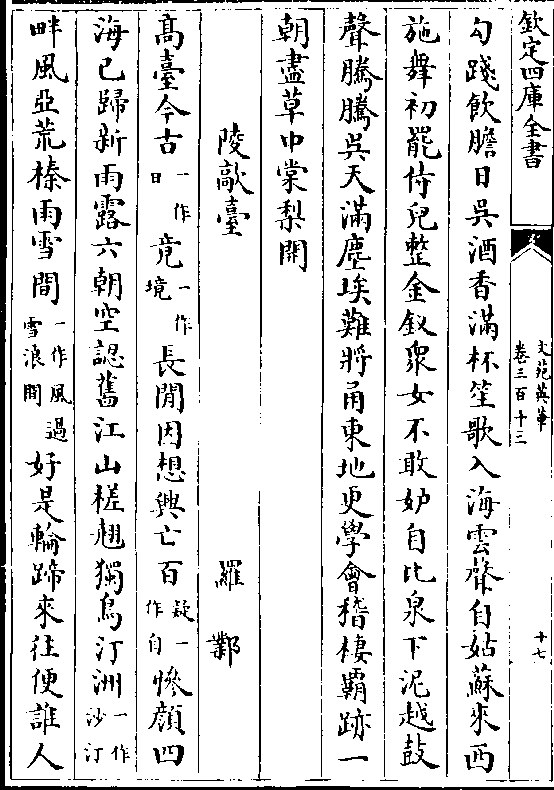 欽定四庫全書
文苑英華
卷三百十三
十七
勾踐飲膽日吳酒香滿杯笙歌入海雲聲自姑蘇來西
施舞初罷侍兒整金釵衆女不敢妒自比泉下泥越鼓
聲騰騰吳天滿塵埃難將甬東地更學會稽棲霸跡一
朝盡草中棠梨開
陵歊臺 羅鄴
髙臺今古一作日竟一作境長閒因想興亡百疑一作自慘顔四
海已歸新雨露六朝空認舊江山槎翹獨鳥汀洲一作沙汀
畔風亞荒榛雨雪間一作風雪浪間過好是輪蹄來往便誰人